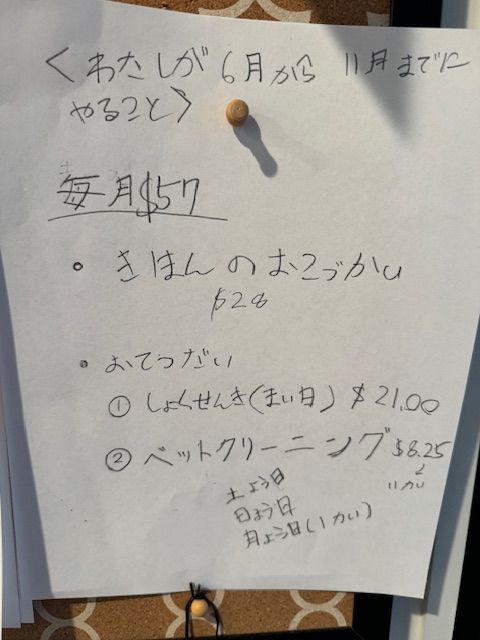 <わたしが 6月から 11月までに
やること>
毎月$57
• きほんのおこづかい
$28
• おてつだい
① しょくせんき(まい日) $21.00
② ベットクリーニング $8.25
11かい
土よう日
日よう日
月よう日(1かい)